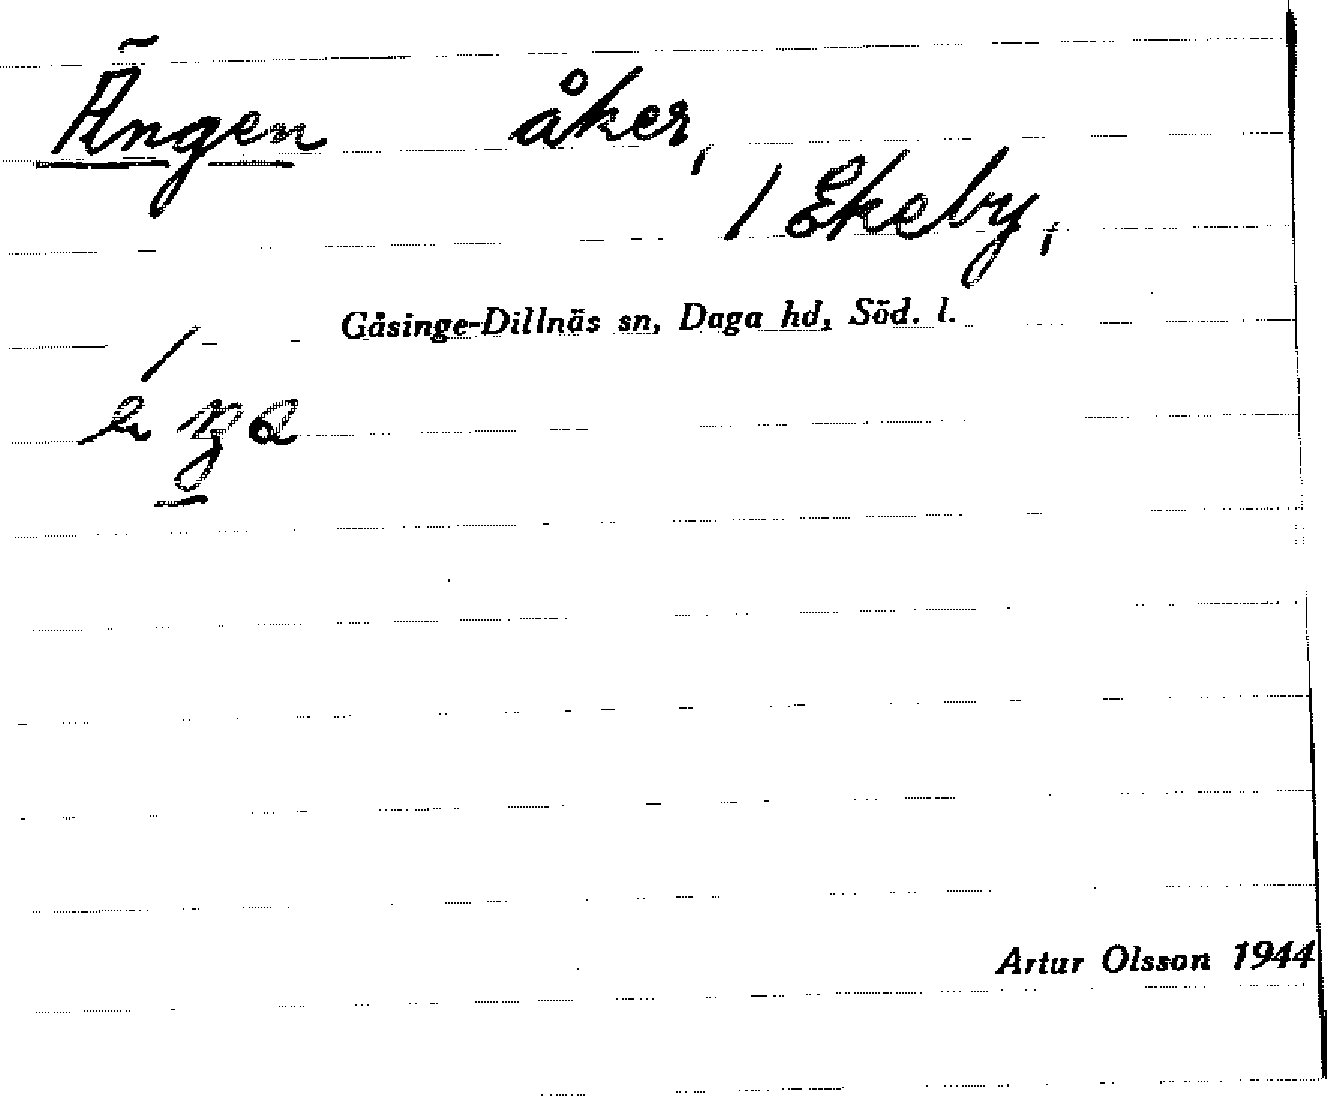 Ängen åker,
1 Ekeby,
Gåsinge-Dillnäs sn, Daga hd, Söd. l.
Artur Olsson 1944